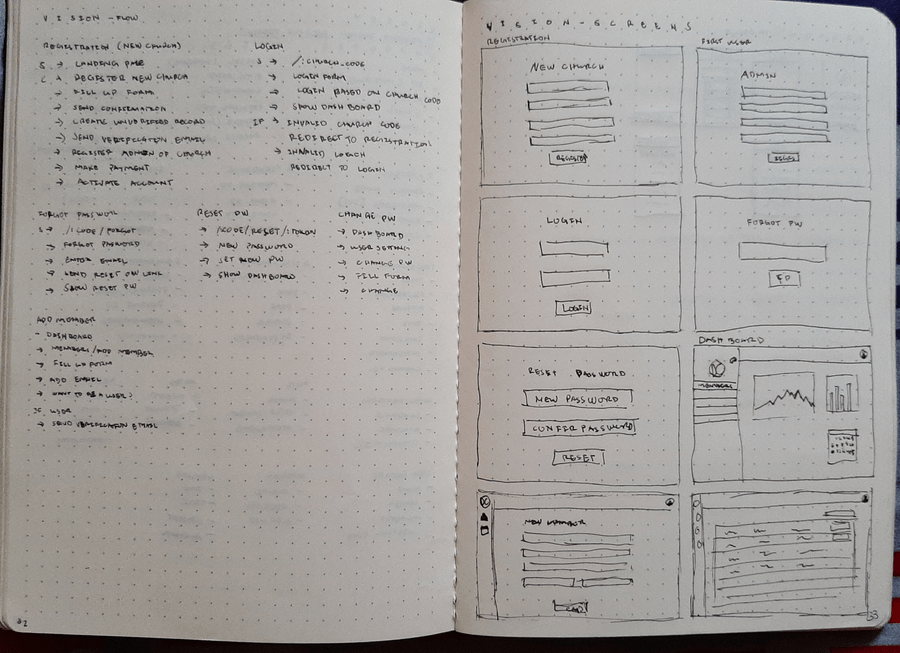 VISION - FLOW
REGISTRATION (NEW CHURCH)
S → LANDING PAGE
→ REGISTER NEW CHURCH
→ FILL UP FORM
→ SEND CONFIRMATION
→ CREATE UNVERIFIED RECORD
→ SEND VERIFICATION EMAIL
→ REGISTER ADMIN OF CHURCH
→ MAKE PAYMENT
→ ACTIVATE ACCOUNT
LOGIN
S → /:CHURCH_CODE
→ LOGIN FORM
→ LOGIN BASED ON CHURCH CODE
→ SHOW DASHBOARD
IF → INVALID CHURCH CODE
REDIRECT TO REGISTRATION
→ INVALID LOGIN
REDIRECT TO LOGIN
FORGOT PASSWORD
S → /:CODE/FORGOT
→ FORGOT PASSWORD
→ ENTER EMAIL
→ SEND RESET PW LINK
→ SHOW RESET PW
RESET PW
→ /CODE/RESET/:TOKEN
→ NEW PASSWORD
→ SET NEW PW
→ SHOW DASHBOARD
CHANGE PW
→ DASHBOARD
→ USER SETTING
→ CHANGE PW
→ FILL FORM
→ CHANGE
ADD MEMBER
- DASHBOARD
→ MEMBERS/ADD MEMBER
→ FILL UP FORM
→ ADD EMAIL
→ WANT TO BE A USER?
IF USER
→ SEND VERIFICATION EMAIL
32
VISION - SCREENS
REGISTRATION
NEW CHURCH
REGISTER
FIRST USER
ADMIN
LOGIN
LOGIN
FORGOT PW
FP
RESET PASSWORD
NEW PASSWORD
CONFIR PASSWORD
RESET
DASHBOARD
MEMBERS
NEW MEMBER
33